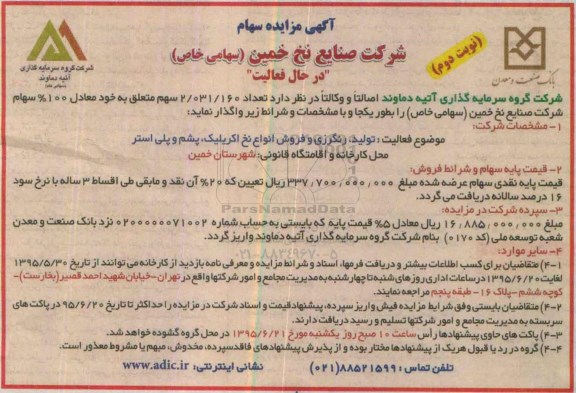 آگهی مزایده سهام
شرکت صنایع نخ خمین (سهامی خاص)
"در حال فعالیت"
(نوبت دوم)
بانک صنعت و معدن
شرکت گروه سرمایه گذاری
آتیه دماوند
(سهامی عام)
شرکت گروه سرمایه گذاری آتیه دماوند اصالتاً و وکالتاً در نظر دارد تعداد ۲/۰۳۱/۱۶۰ سهم متعلق به خود معادل ۱۰۰% سهام
شرکت صنایع نخ خمین (سهامی خاص) را بطور یکجا و با مشخصات و شرائط زیر واگذار نماید:
۱- مشخصات شرکت:
موضوع فعالیت : تولید، رنگرزی و فروش انواع نخ اکریلیک، پشم و پلی استر
محل کارخانه و اقامتگاه قانونی: شهرستان خمین
۲- قیمت پایه سهام و شرائط فروش:
قیمت پایه نقدی سهام عرضه شده مبلغ ۳۳۷,۷۰۰,۰۰۰,۰۰۰ ریال تعیین که ۲۰% آن نقد و مابقی طی اقساط ۳ ساله با نرخ سود
۱۶ درصد سالانه دریافت می گردد.
۳- سپرده شرکت در مزایده:
مبلغ ۱۶,۸۸۵,۰۰۰,۰۰۰ ریال معادل ۵% قیمت پایه که بایستی به حساب شماره ۰۲۰۰۰۰۰۰۷۱۰۰۲ نزد بانک صنعت و معدن
شعبه توسعه ملی (کد ۰۱۷۰) بنام شرکت گروه سرمایه گذاری آتیه دماوند واریز گردد.
۴- سایر موارد:
۴-۱) متقاضیان برای کسب اطلاعات بیشتر و دریافت فرمها، اسناد و شرائط مزایده و معرفی نامه بازدید از کارخانه می توانند از تاریخ ۱۳۹۵/۵/۳۰
لغایت ۱۳۹۵/۶/۲۰ در ساعات اداری روزهای شنبه تا چهارشنبه به مدیریت مجامع و امور شرکتها واقع در تهران - خیابان شهید احمد قصیر (بخارست) -
کوچه ششم - پلاک ۱۶ - طبقه پنجم مراجعه نمایند.
۴-۲) متقاضیان بایستی وفق شرائط مزایده فیش واریز سپرده، پیشنهاد قیمت و اسناد شرکت در مزایده را حداکثر تا تاریخ ۹۵/۶/۲۰ در پاکت های
سربسته به مدیریت مجامع و امور شرکتها تسلیم و رسید دریافت دارند.
۴-۳) پاکت های حاوی پیشنهادها رأس ساعت ۱۰ صبح روز یکشنبه مورخ ۱۳۹۵/۶/۲۱ در محل گروه گشوده خواهد شد.
۴-۴) گروه در رد یا قبول هریک از پیشنهادها مختار بوده و از پذیرش پیشنهادهای فاقد سپرده، مخدوش، مبهم یا مشروط معذور است.
تلفن تماس : ۸۸۵۲۱۵۹۹(۰۲۱) نشانی اینترنتی: www.adic.ir
ParsNamadData